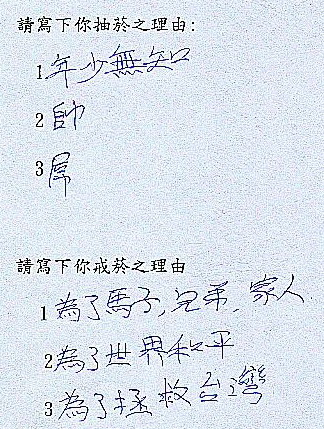 請寫下你抽菸之理由:
1 年少無知
2 帥
3 屌
請寫下你戒菸之理由
1 為了馬子,兄弟,家人
2 為了世界和平
3 為了拯救台灣